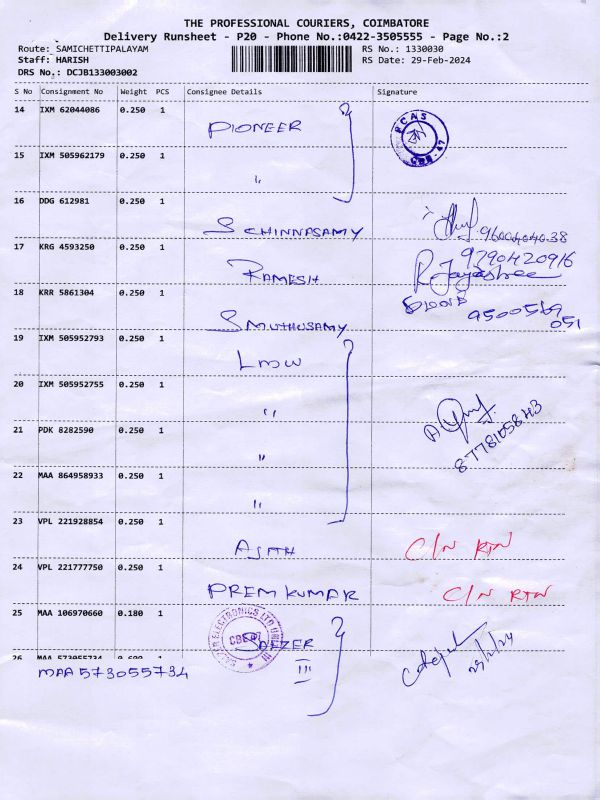 THE PROFESSIONAL COURIERS, COIMBATORE
Delivery Runsheet - P20 - Phone No.:0422-3505555 - Page No.:2
Route: SAMICHETTIPALAYAM RS No.: 1330030
Staff: HARISH RS Date: 29-Feb-2024
DRS No.: DCJB133003002
S No Consignment No Weight PCS Consignee Details Signature
14 IXM 62044086 0.250 1 PIONEER
PCAS
CBE-47
15 IXM 505962179 0.250 1 "
16 DDG 612981 0.250 1 S CHINNASAMY 9600404038
17 KRG 4593250 0.250 1 RAMESH 9790420916
R Jayashree
18 KRR 5861304 0.250 1 S MUTHUSAMY 9500569
051
19 IXM 505952793 0.250 1 LMW
20 IXM 505952755 0.250 1 "
21 PDK 8282590 0.250 1 "
22 MAA 864958933 0.250 1 "
23 VPL 221928854 0.250 1 C/N RTN
24 VPL 221777750 0.250 1 PREM KUMAR C/N RTN
25 MAA 106970660 0.180 1 SALZER
III
26 MAA 573055734 0.500 1
MAA 573055734 29/2/24